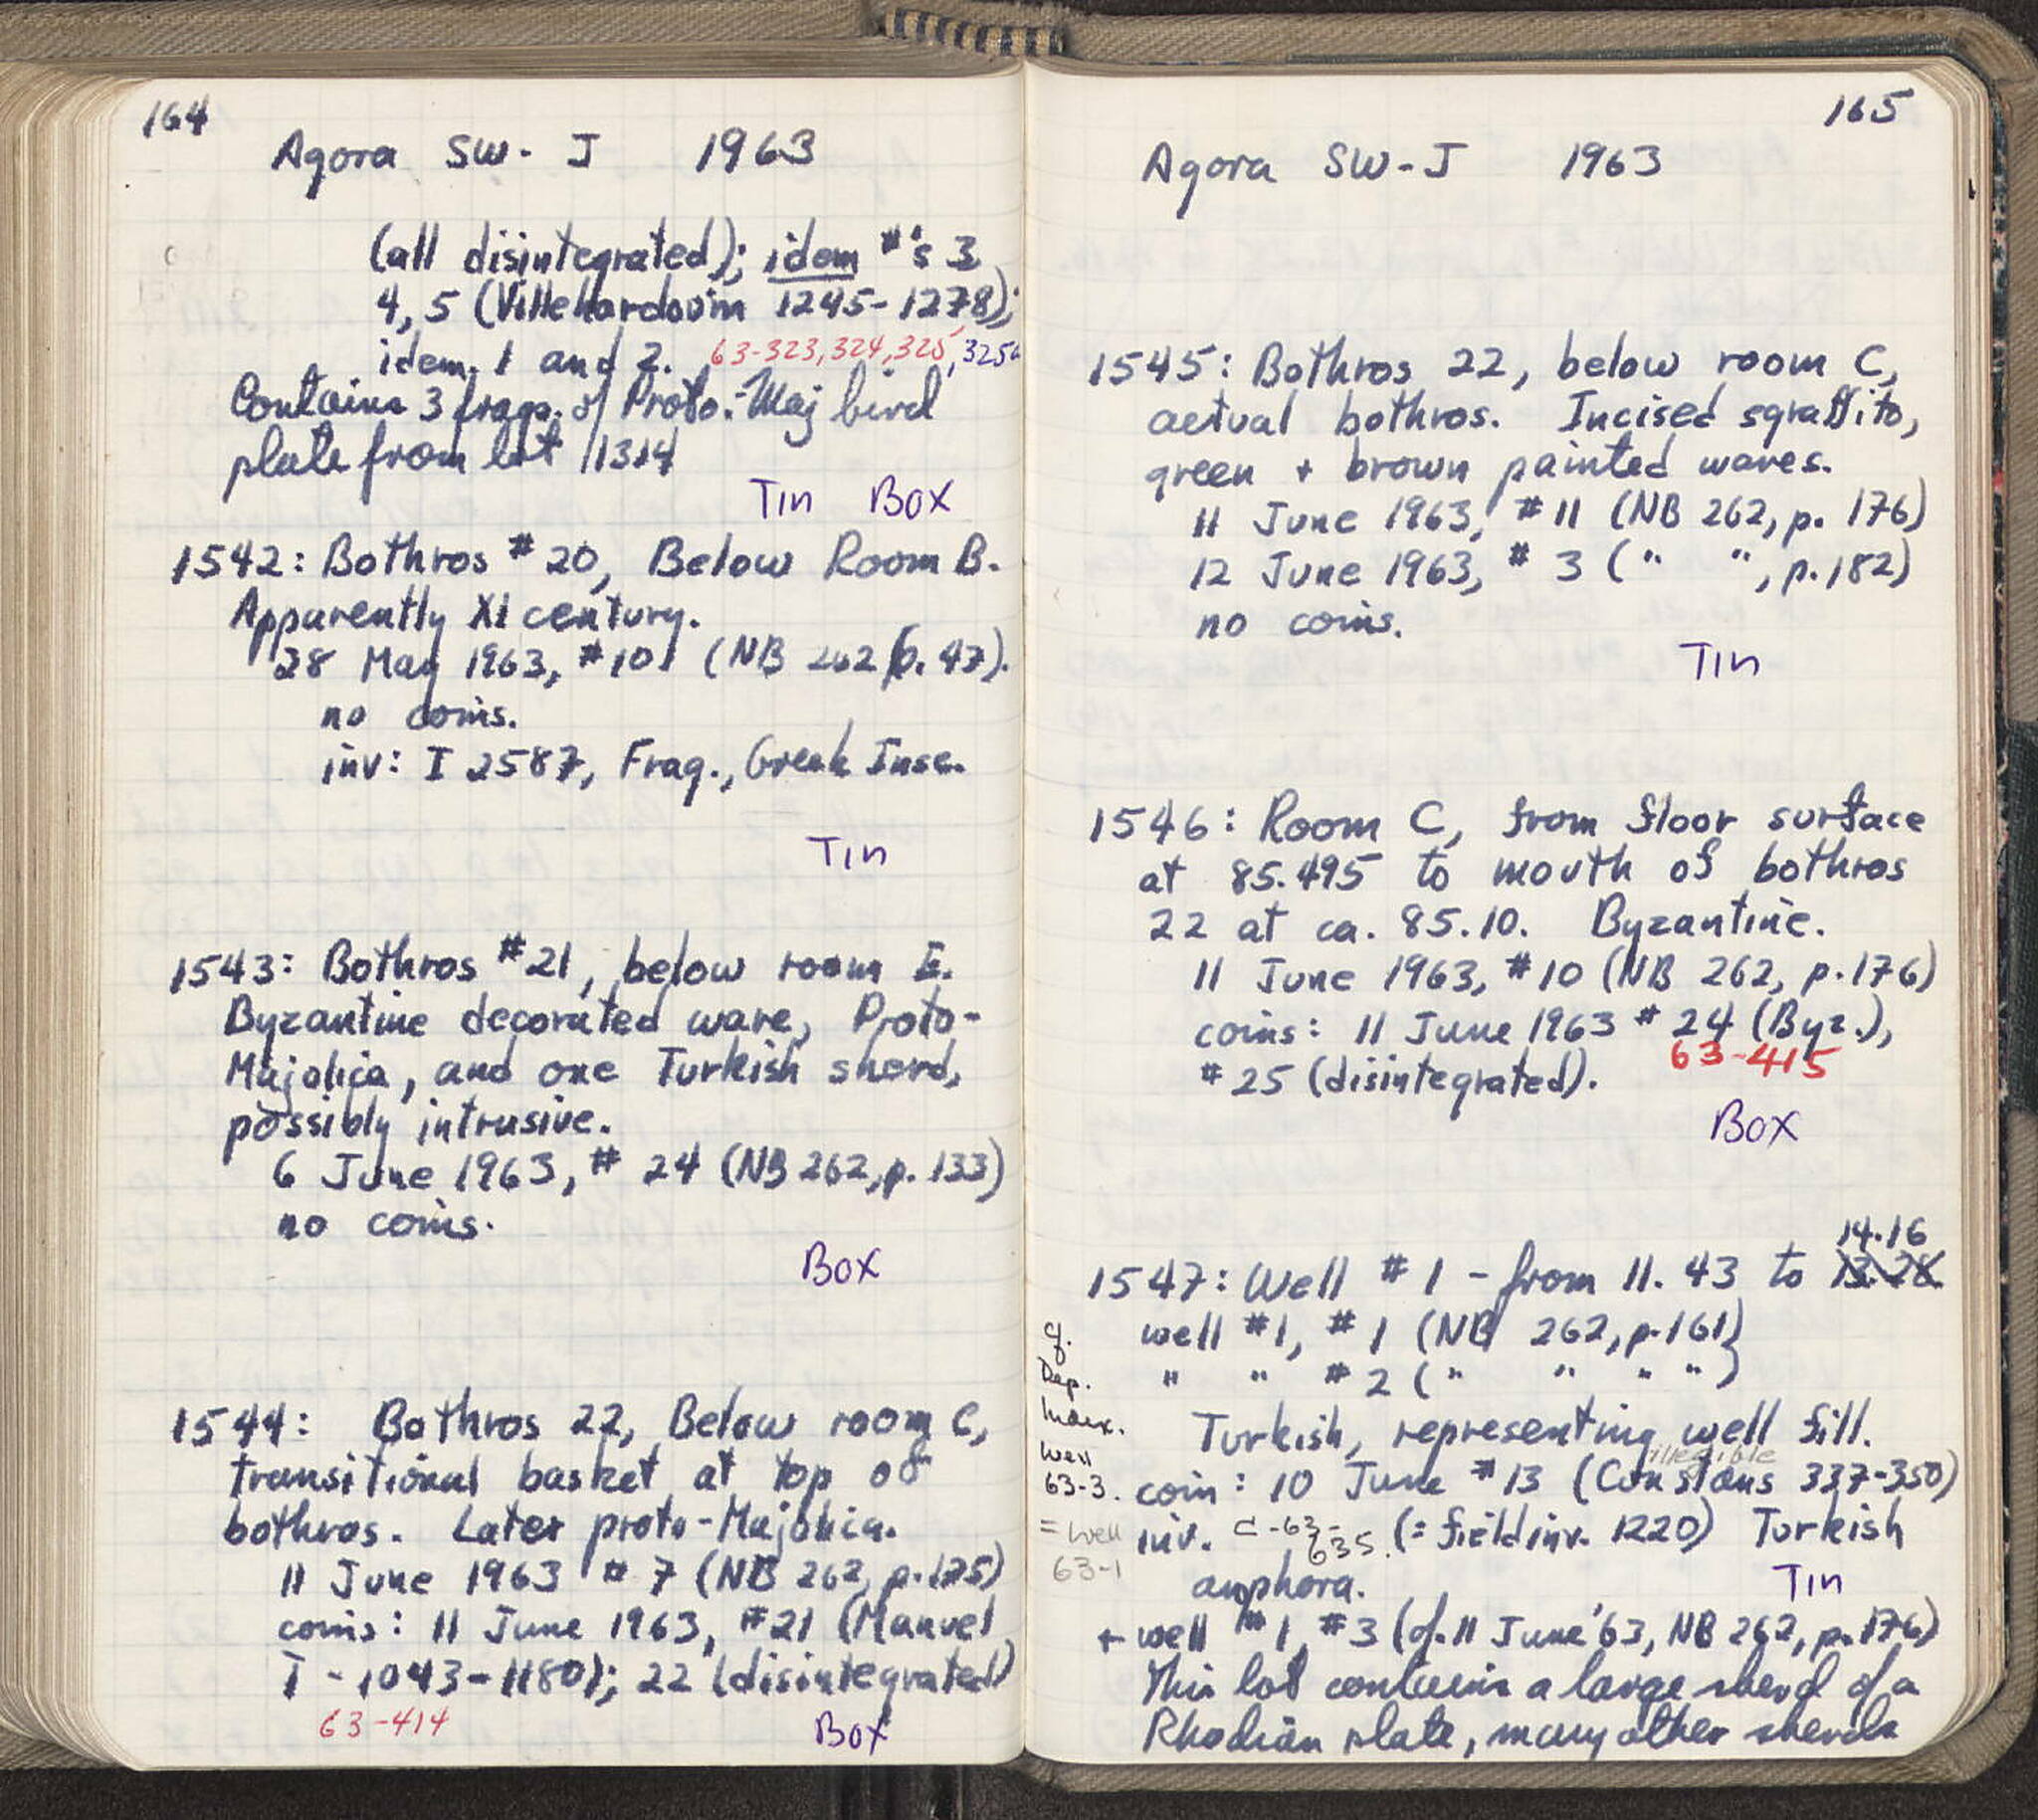 164
Agora SW- J 1963
(all disintegrated); idem #'s 3
4, 5 (Villehardouin 1245-1278);
idem. 1 and 2. 63-323, 324, 325, 325a
Contains 3 frags. of Proto.-Maj bird
plate from lot 1314
Tin Box
1542: Bothros #20, Below Room B.
Apparently XI century.
28 May 1963, #10 (NB 262 p. 47).
no coins.
inv: I 2587, Frag., Greek Insc.
Tin
1543: Bothros #21, below room E.
Byzantine decorated ware, Proto-
Majolica, and one Turkish sherd,
possibly intrusive.
6 June 1963, # 24 (NB 262, p. 133)
no coins.
Box
1544: Bothros 22, Below room C,
transitional basket at top of
bothros. Later proto-Majolica.
11 June 1963 # 7 (NB 262, p. 175)
coins: 11 June 1963, #21 (Manuel
I - 1043-1180); 22 (disintegrated)
63-414
Box
165
Agora SW-J 1963
1545: Bothros 22, below room C,
actual bothros. Incised sgraffito,
green + brown painted waves.
11 June 1963, #11 (NB 262, p. 176)
12 June 1963, # 3 (" ", p. 182)
no coins.
Tin
1546: Room C, from floor surface
at 85.495 to mouth of bothros
22 at ca. 85.10. Byzantine.
11 June 1963, #10 (NB 262, p. 176)
coins: 11 June 1963 # 24 (Byz.),
63-415
# 25 (disintegrated).
Box
14.16
1547: Well # 1 - from 11.43 to 13.28
well #1, # 1 (NB 262, p. 161)
" " # 2 (" " " ")
Turkish, representing well fill.
illegible
coin: 10 June #13 (Constans 337-350)
inv. C-63-
635. (= field inv. 1220) Turkish
amphora.
Tin
+ well #1, #3 (cf. 11 June '63, NB 262, p. 176)
This lot contains a large sherd of a
Rhodian plate, many other sherds
cf.
Dep.
Index.
Well
63-3.
= well
63-1